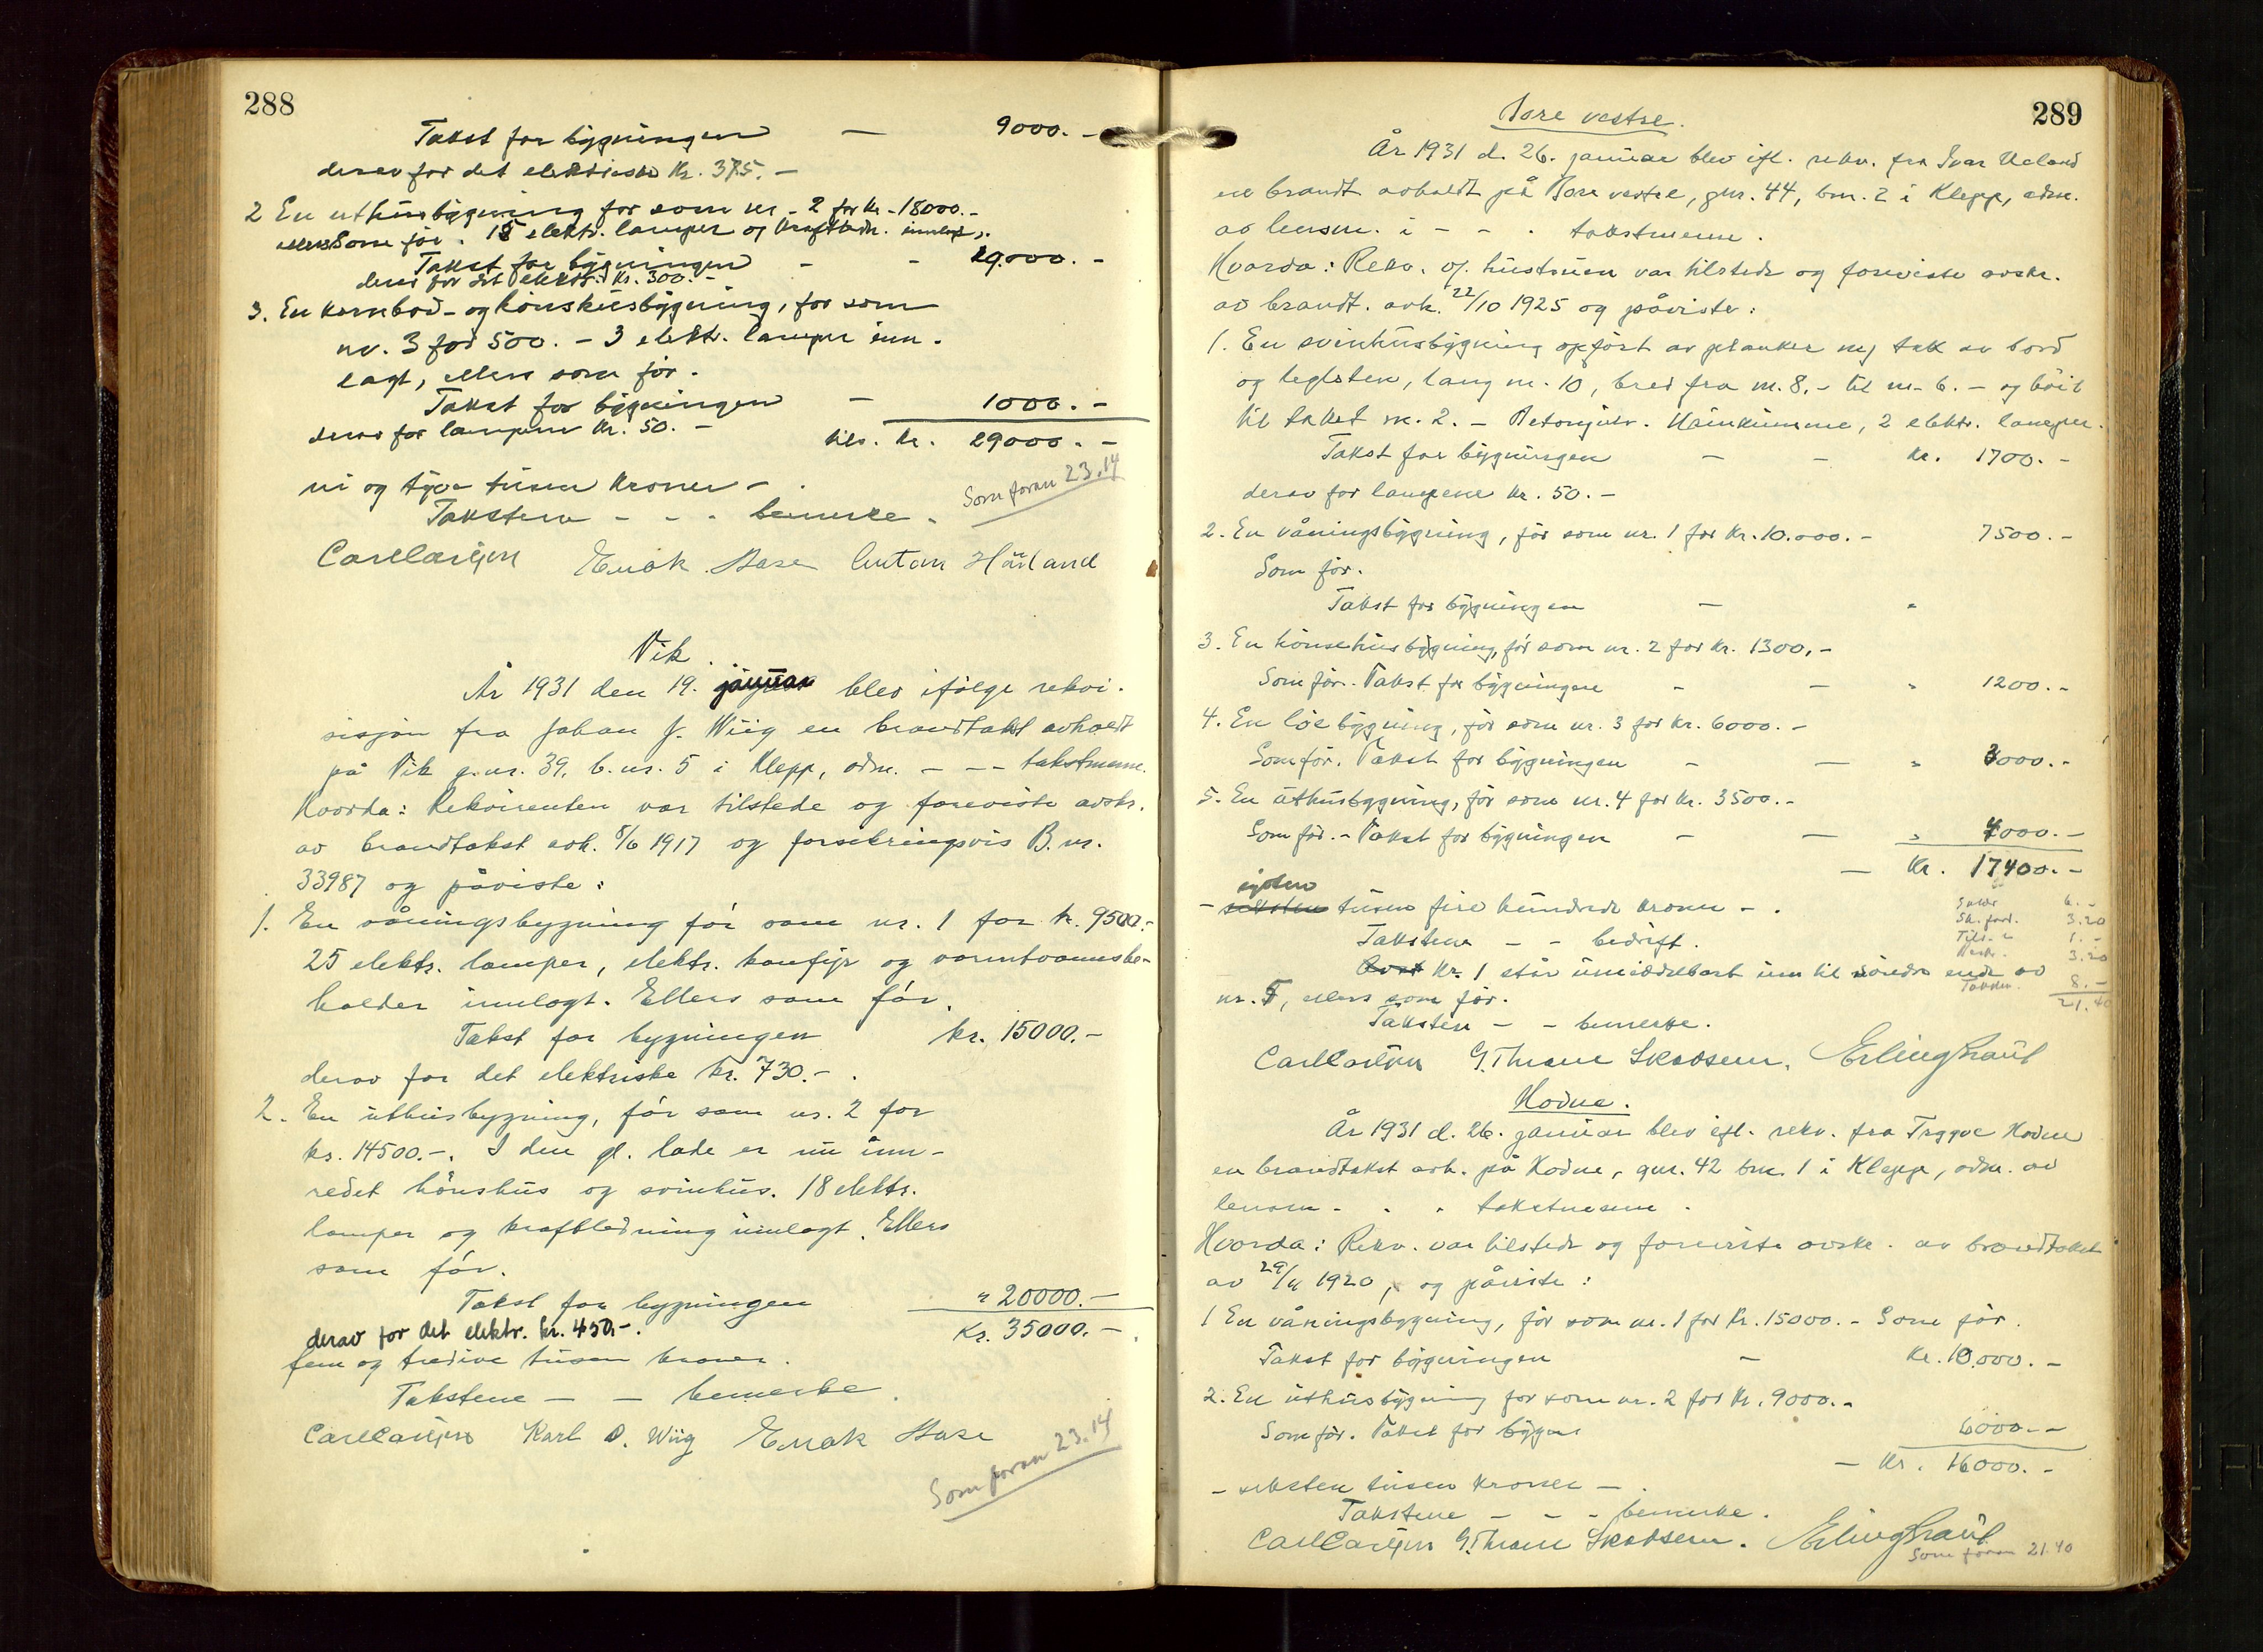 288
Takst for bygningen — 9000.-
derav for det elektriske Kr. 375.-
2 En uthusbygning før som nr. 2 for Kr. 18000.-
ellers Som før. 15 elektr. lamper og kraftledn. innlagt.
Takst for bygningen - - 19.000.-
derav for det elektr. Kr. 300.-
3. En kornbod- og hönsehusbygning, før som
nr. 3 for 500.- 3 elektr. lamper inn-
lagt, ellers som før.
Takst for bygningen - 1000.-
derav for lampene Kr. 50.- tils. kr. 29000.-
ni og tyve tusen kroner -.
Som foran 23.14
Takstene - - - bemerke.
Carl Carlsen Enok Hase Anton Håland
Vik.
År 1931 den 19. januar blev ifølge rekvi-
sisjon fra Johan J. Wiig en brandtakst avholdt
på Vik g.nr. 39, b.nr. 5 i Klepp, adm. - - - takstmenn.
Hvorda: Rekvirenten var tilstede og foreviste avskr.
av brandtakst avh. 8/6 1917 og forsikringsvis B. nr.
33987 og påviste:
1. En våningsbygning før som nr. 1 for kr. 9500.-
25 elektr. lamper, elektr. komfyr og varmtvannsbe-
holder innlagt. Ellers som før.
Takst for bygningen kr. 15000.-
derav for det elektriske kr. 730.-.
2. En uthusbygning, før som nr. 2 for
kr. 14500.-. I den gl. lade er nu inn-
redet hönshus og svinhus. 18 elektr.
lamper og kraftledning innlagt. Ellers
som før.
Takst for bygningen " 20000.-
derav for det elektr. kr. 450.-. Kr. 35000.-
fem og tredive tusen kroner.
Takstene - - bemerke.
Carl Carlsen Karl O. Wiig Enok Hase
Som foran 23.14
289
Bore vestre.
År 1931 d. 26. januar blev ifl. rekv. fra Ivar Ueland
en brandt avholdt på Bore vestre, gnr. 44, bnr. 2 i Klepp, adm.
av lensm. i - - . takstmenn.
Hvorda: Rekv. og hustruen var tilstede og foreviste avskr.
av brandt. avh. 22/10 1925 og påviste:
1. En svinhusbygning opført av planker m/ tak av bord
og teglsten, lang m. 10, bred fra m. 8,- til m. 6.- og höit
til taket m. 2.- Betongulv. 2 elektr. lamper.
Takst for bygningen - - Kr. 1700.-
derav for lampene Kr. 50.-
2. En våningsbygning, før som nr. 1 for Kr. 10.000.- 7500.-
Som før.
Takst for bygningen - "
3. En hönsehusbygning, før som nr. 2 for Kr. 1300.-
Som før. Takst for bygningen - - " 1200.-
4. En löebygning, før som nr. 3 for Kr. 6000.-
Som før. Takst for bygningen - - " 3000.-
5. En uthusbygning, før som nr. 4 for Kr. 3500.-
Som før. - Takst for bygningen - - " 4000.-
- Kr. 17400.-
sytten
- seksten tusen fire hundrede kroner -.
6.-
Sk. ford. 3.20
Takstene - - bedrift.
1.-
3.20
Nr. 1 står umiddelbart inn til söndre ende av
8.-
nr. 5, ellers som før.
21.40
Taksten - - bemerke.
Carl Carlsen G. Thrane Skadsem. Erling Graul
Hodne.
År 1931 d. 26. januar blev ifl. rekv. fra Trygve Hodne
en brandtakst avh. på Hodne, gnr. 42 bnr. 1 i Klepp, adm. av
lensm - . . takstmenn.
Hvorda: Rekv. var tilstede og foreviste avskr. av brandtakst
av 29/4 1920, og påviste:
1 En våningsbygning, før som nr. 1 for Kr. 15000.- Som før.
Takst for bygningen - Kr. 10.000.-
2. En uthusbygning før som nr. 2 for Kr. 9000.-
Som før. Takst for bygn: 6000.-
- Kr. 16000.-
- seksten tusen kroner -.
Takstene - - - bemerke.
Carl Carlsen G. Thrane Skadsem. Erling Graul
Som foran 21.40